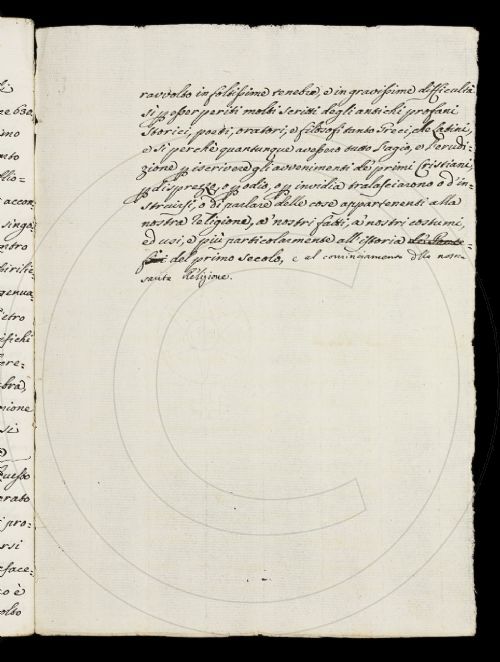 ravvolto in foltissime tenebre, e in gravissime difficultà
sì p esser periti molti scritti degli antichi profani
Storici, poeti, oratori, e filosofi tanto Greci, che Latini,
e sì perchè quantunque avessero tutto l'agio, e l'erudi=
zione p iscrivere gli avvenimenti de' primi Cristiani,
p disprezzo, o p odio, o p invidia tralasciarono o d'in=
struirsi, o di parlare delle cose appartenenti alla
nostra Religione, a' nostri fatti, a' nostri costumi,
ed usi, e più particolarmente all'istoria
del primo secolo, e al cominciamento della nas=
cente Religione.
e 630
imo
mbo
accon
singo
ntro
genua
ietro
ifichi
bra,
nione
si
Questo
erato
pro=
rsi
face=
o è
olto